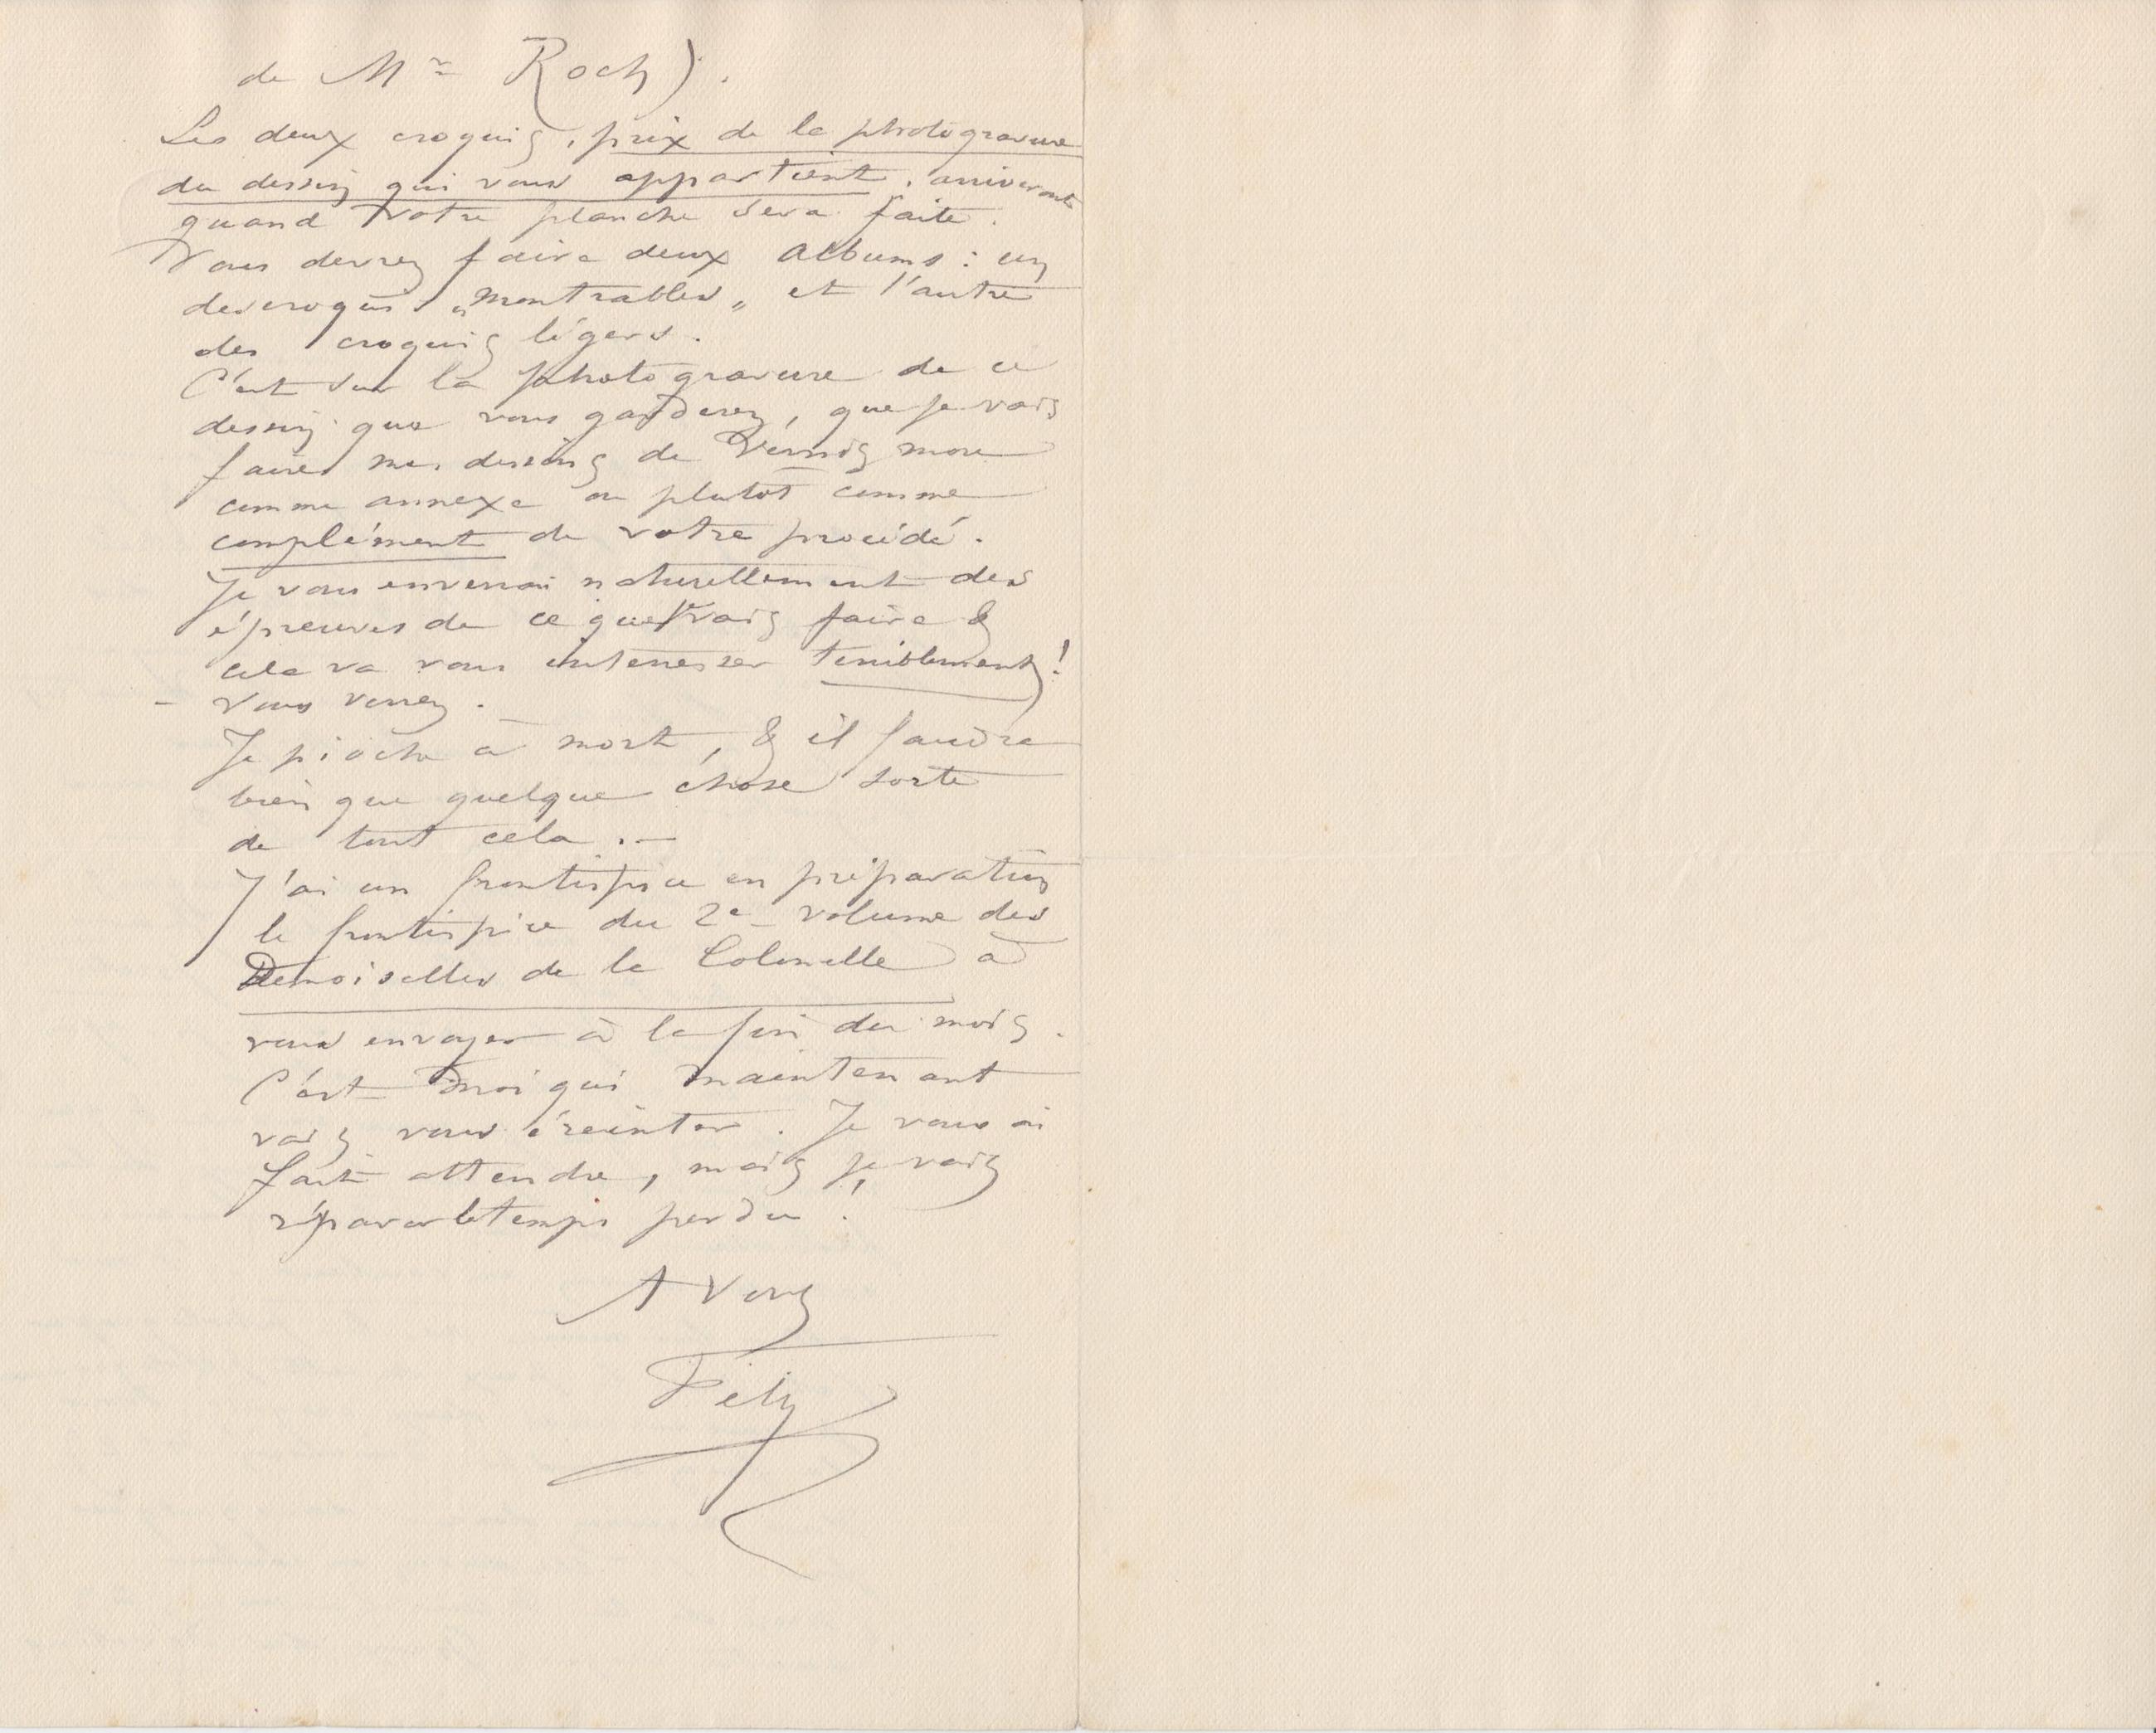 de Mr Roch).
Les deux croquis, prix de la photogravure
du dessin qui vous appartient, arriveront
quand votre planche sera faite.
Vous devrez faire deux albums : un
des croquis „montrables„ et l'autre
des croquis légers.
C'est sur la photogravure de ce
dessin que vous garderez, que je vais
faire mes dessins de Vernis mou
comme annexe ou plutot comme
complément de votre procédé.
Je vous enverrai naturellement des
épreuves de ce que je vais faire &
cela va vous interresser terriblement !
- Vous verrez.
Je pioche a mort, & il faudra
bien que quelque chose sorte
de tout cela .—
J'ai un frontispice en préparation
le frontispice du 2e volume des
Demoiselles de la Colonelle a
vous envoyer à la fin du mois.
C'est moi qui maintenant
vais vous éreinter. Je vous ai
fait attendre, mais je vais
réparer le temps perdu !
A Vous
Fély